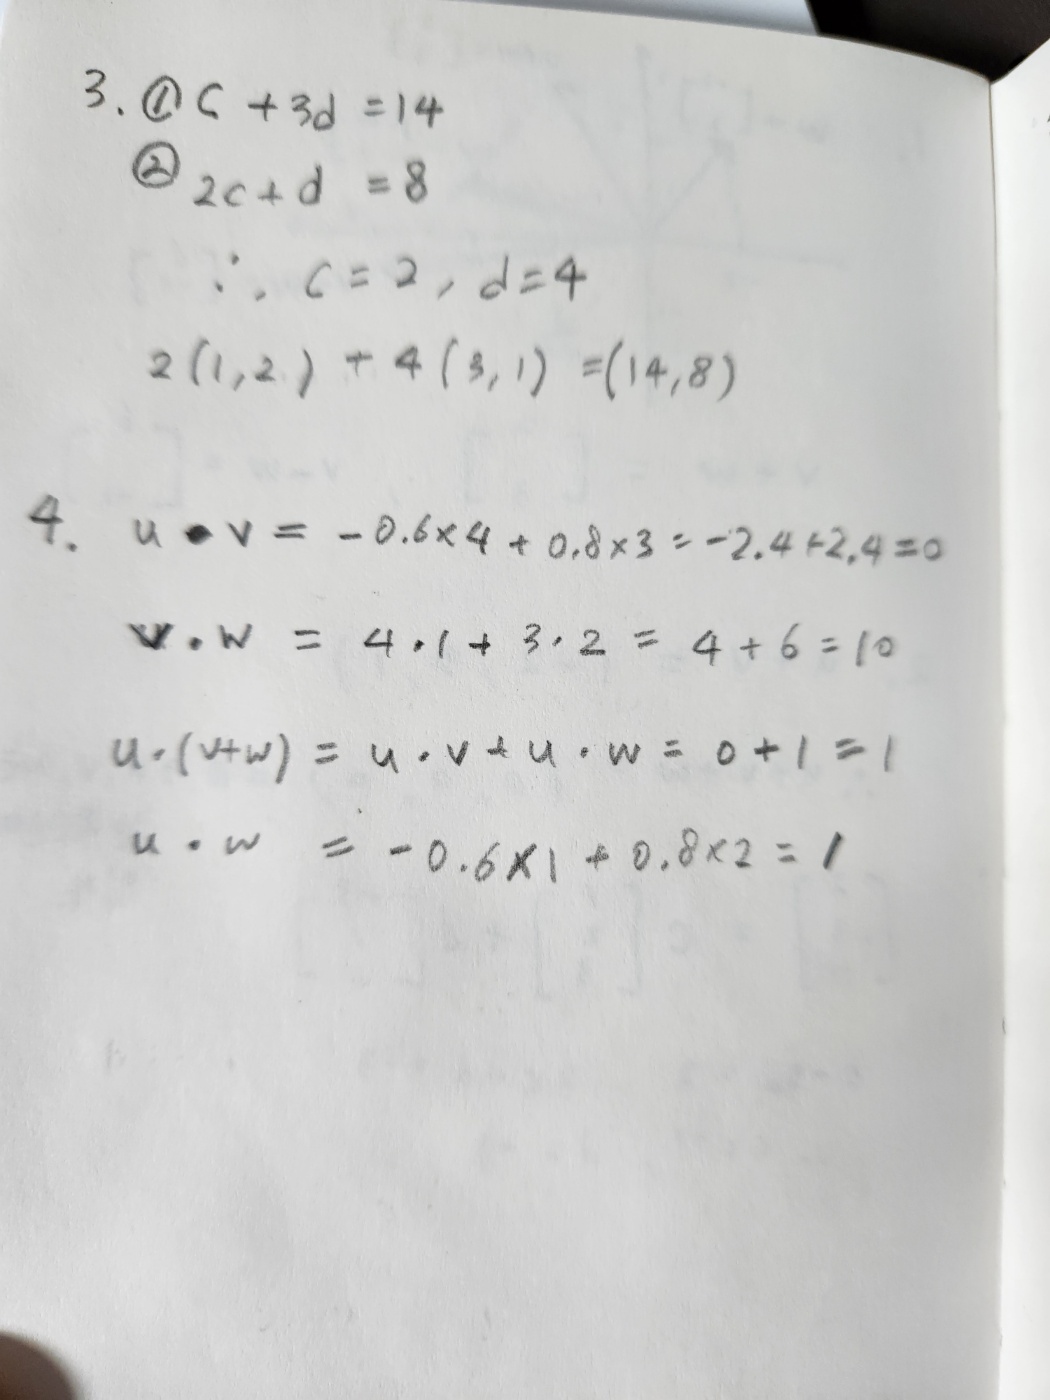 3. ① c + 3d = 14
② 2c + d = 8
∴ c = 2, d = 4
2(1,2) + 4(3,1) = (14,8)
4. u • v = -0.6×4 + 0.8×3 = -2.4+2.4 = 0
v · w = 4·1 + 3·2 = 4 + 6 = 10
u·(v+w) = u·v + u·w = 0 + 1 = 1
u · w = -0.6×1 + 0.8×2 = 1